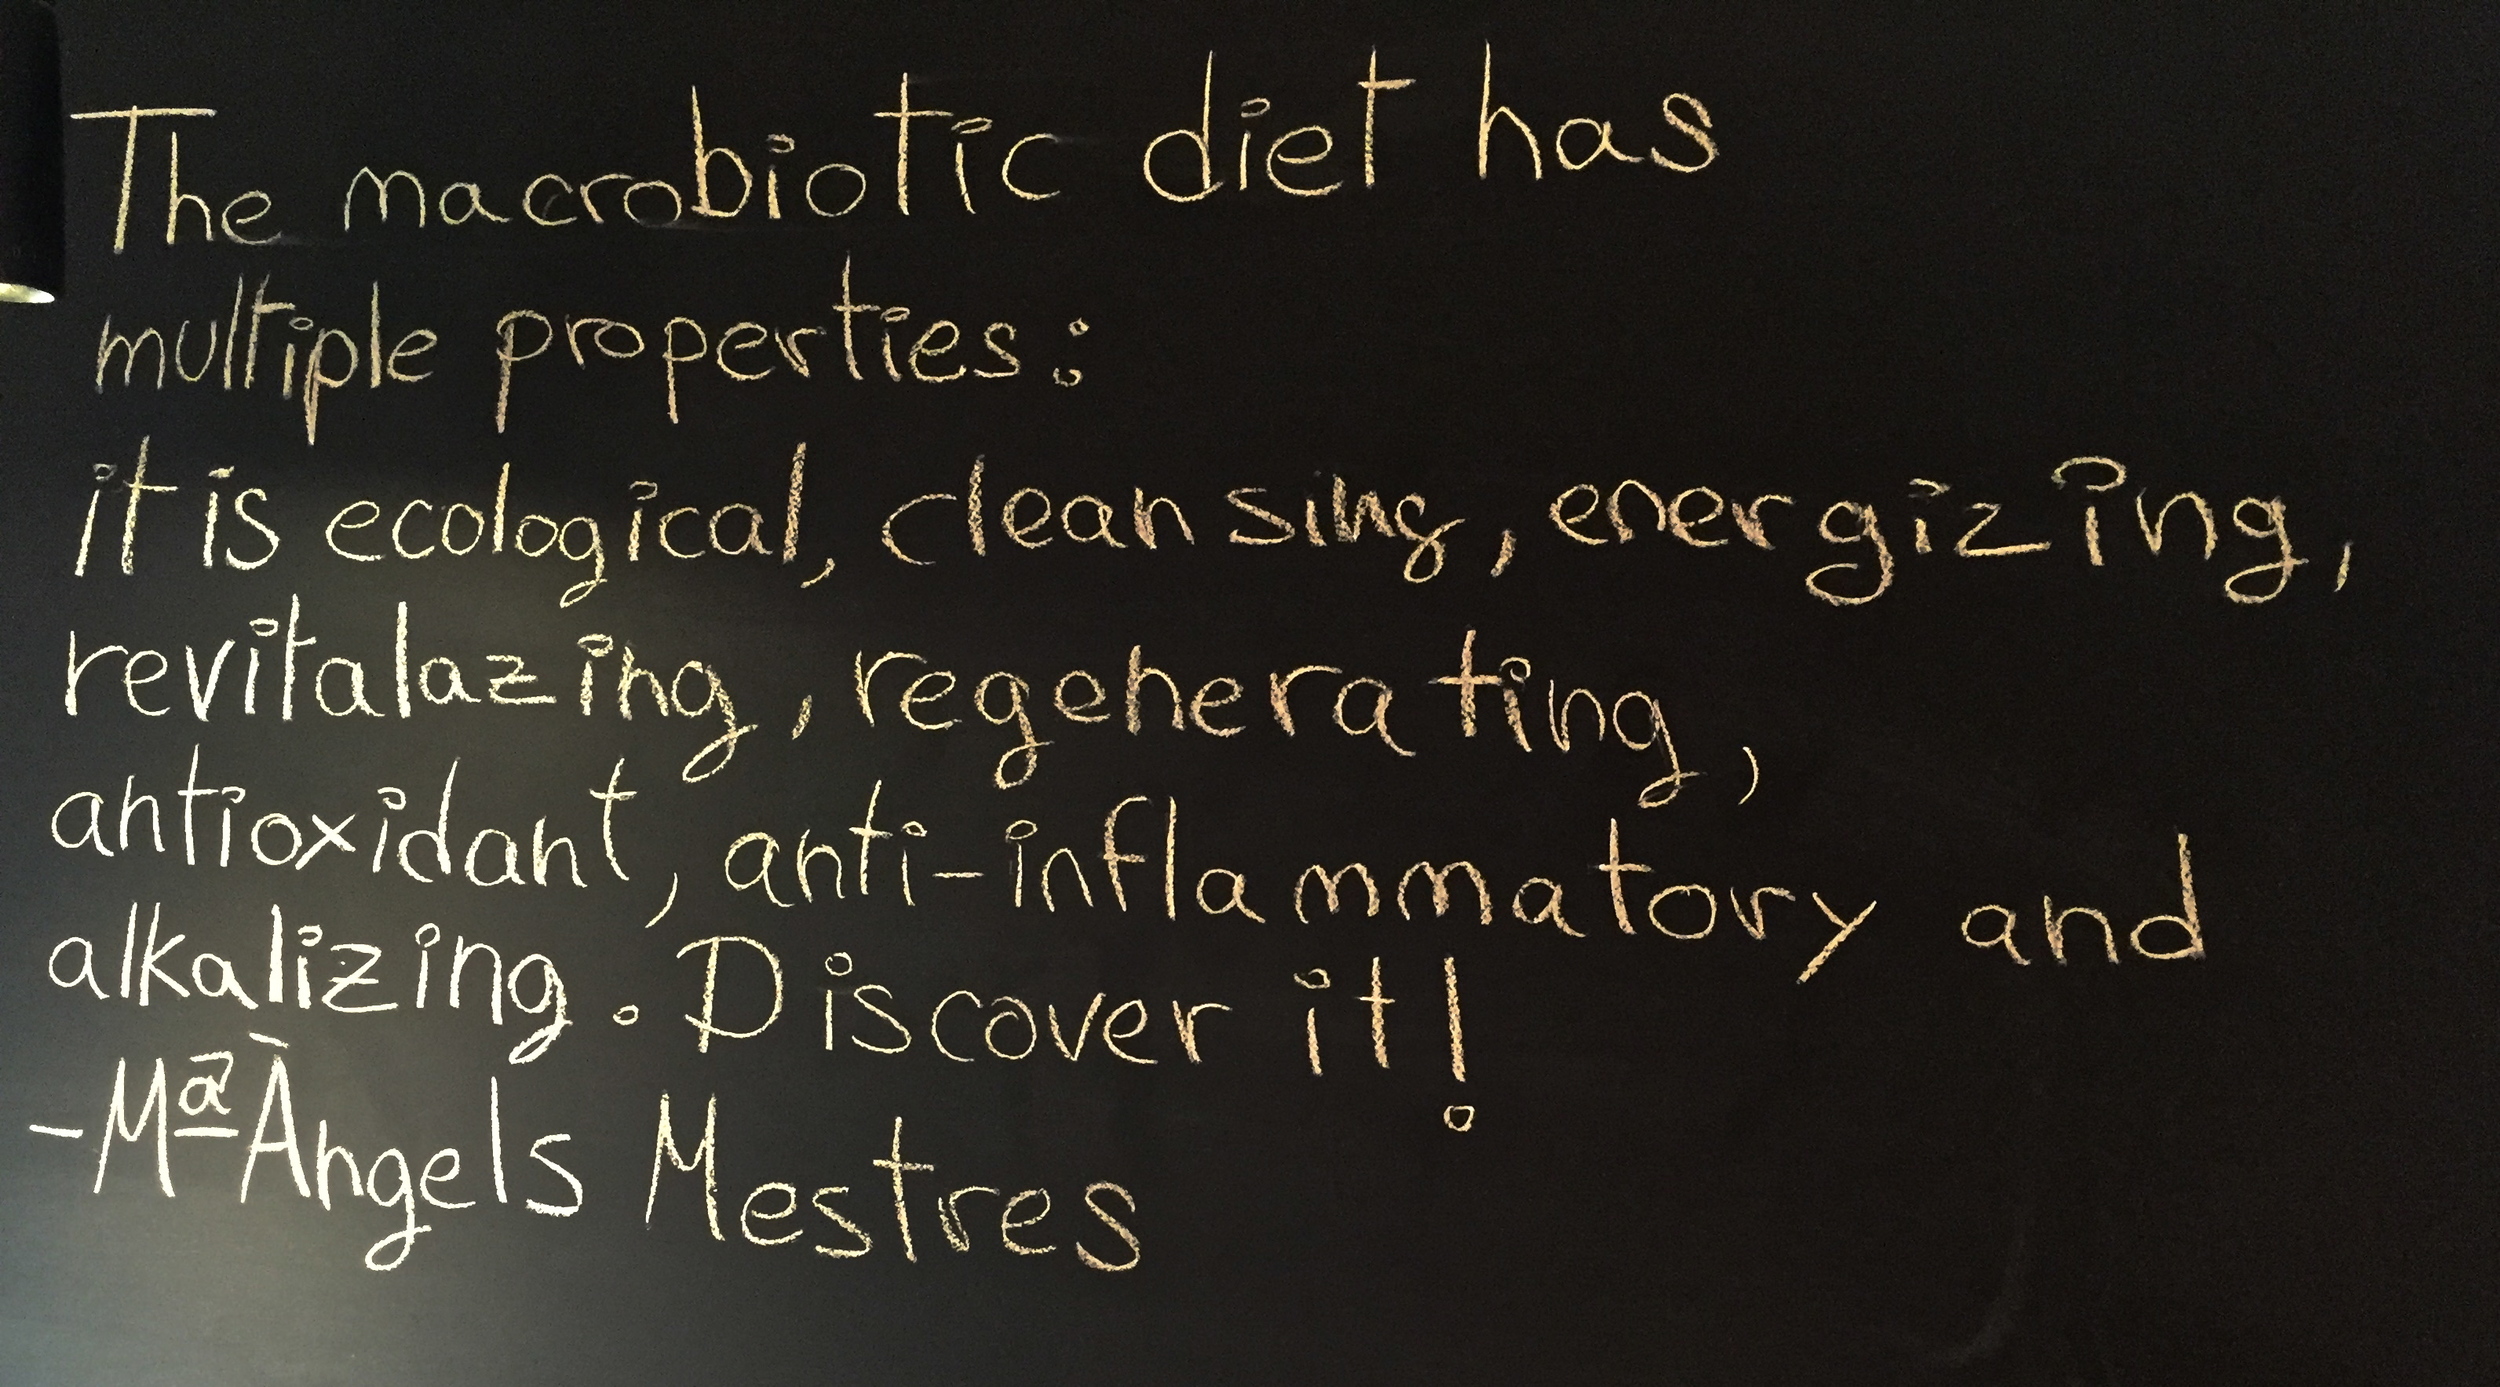 The macrobiotic diet has
multiple properties:
it is ecological, cleansing, energizing,
revitalazing, regenerating,
antioxidant, anti-inflammatory and
alkalizing. Discover it!
-Mª Àngels Mestres